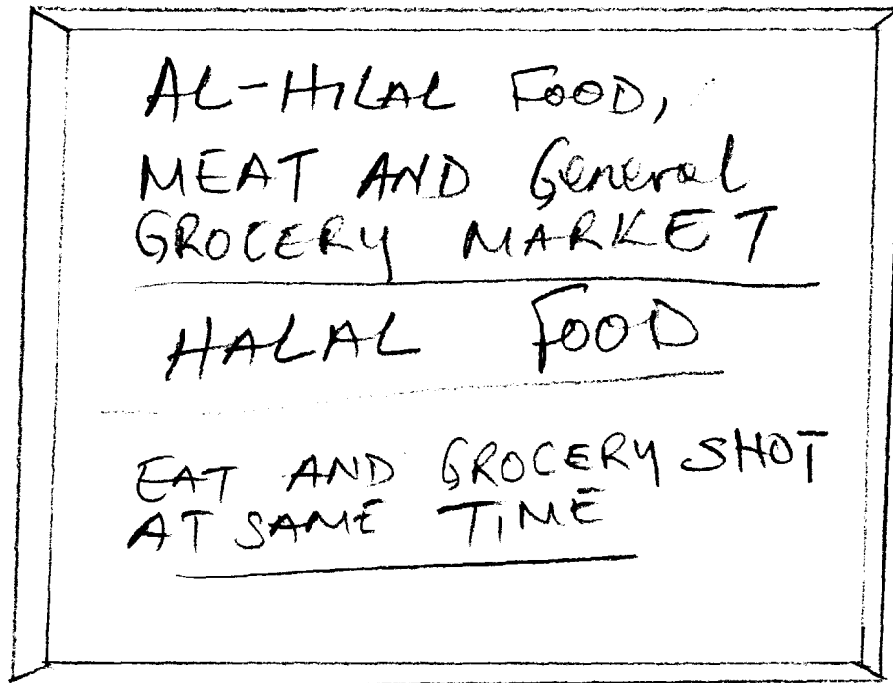 AL-HILAL FOOD,
MEAT AND General
GROCERY MARKET
HALAL FOOD
EAT AND GROCERY SHOT
AT SAME TIME